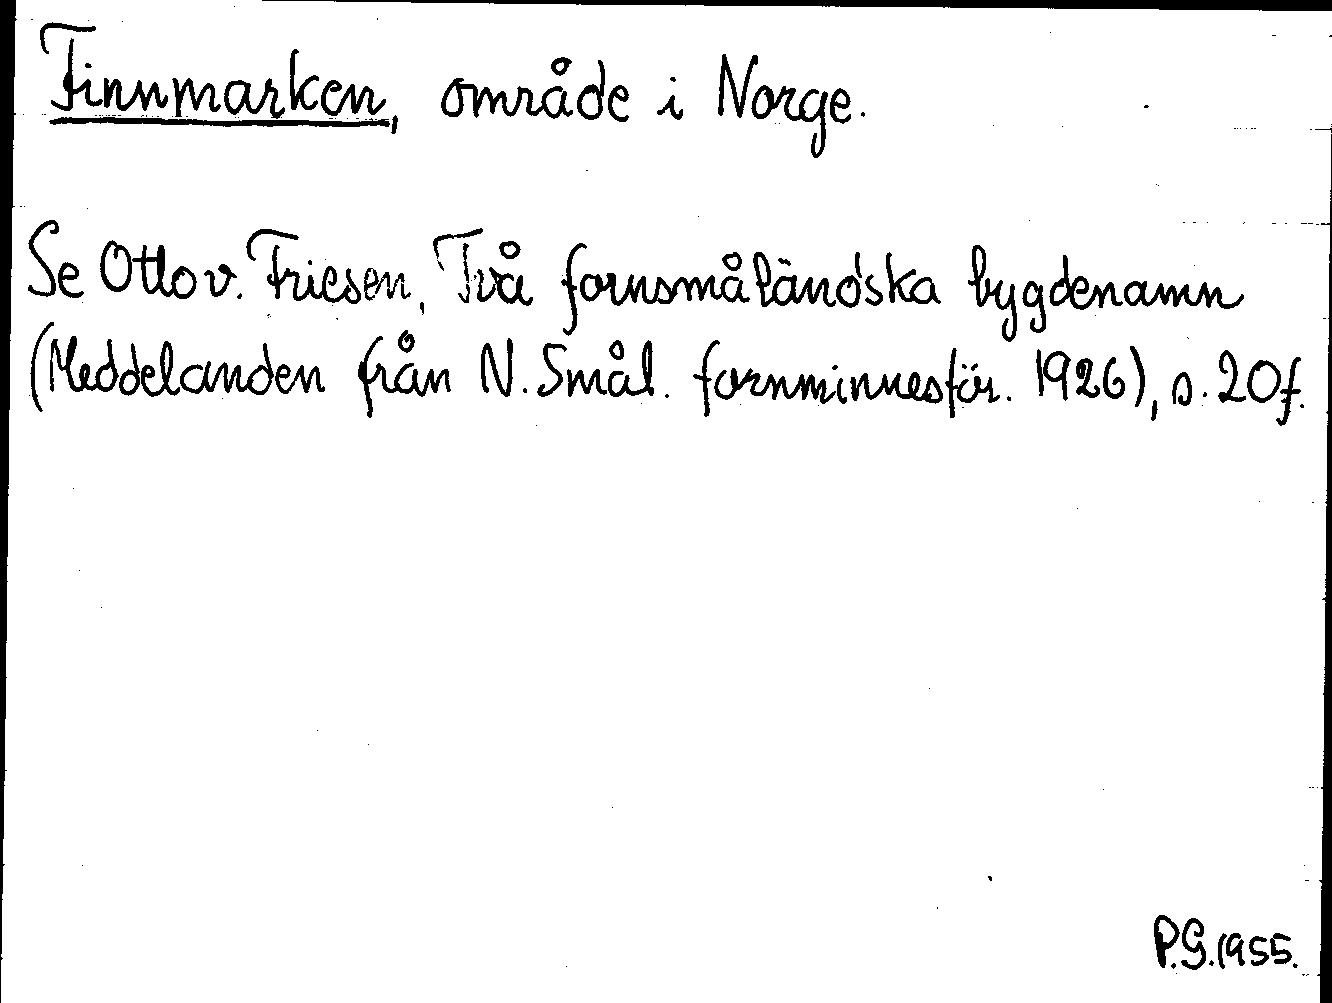 Finnmarken, område i Norge.
Se Otto v. Friesen, Två fornsmåländska bygdenamn
(Meddelanden från N. Smål. fornminnesför. 1926), s. 20f.
P.G. 1955.